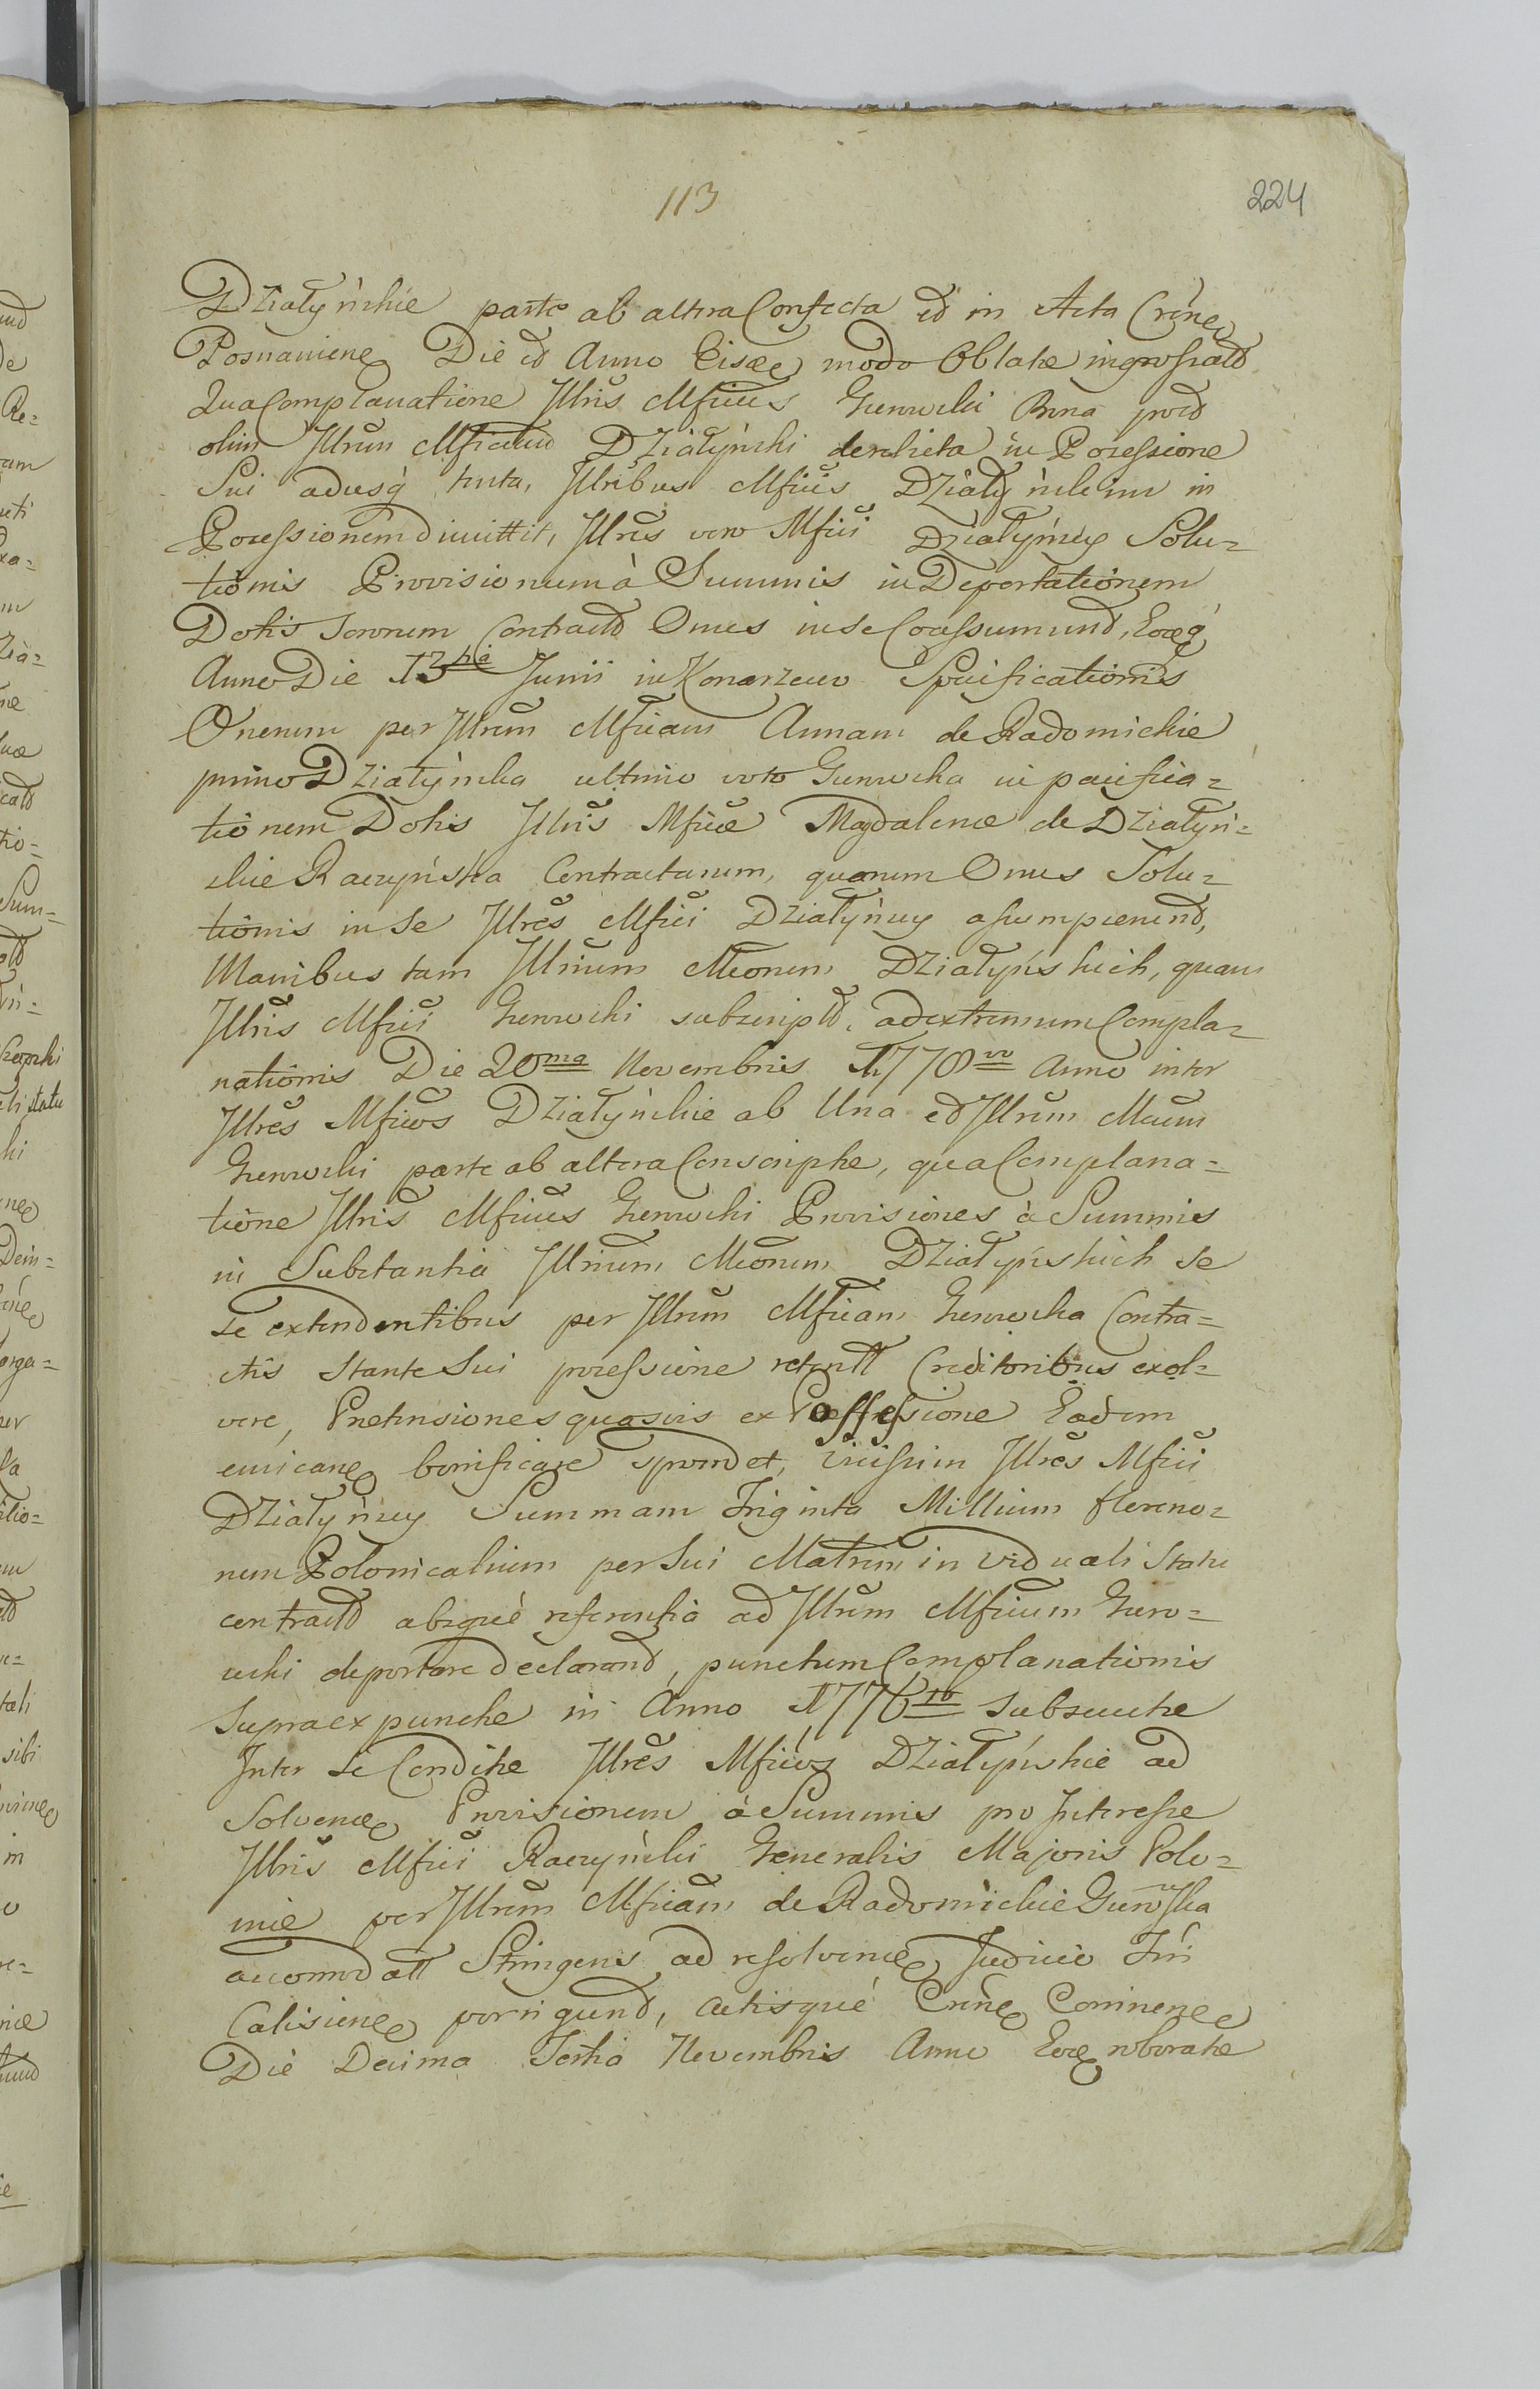 113
224
Działyńskie parte ab altera Confecta et in Acta Crine
Posnaniens Die et Anno Eisd modo Oblatae ingrossatt
Qua Complanatione Illris Mficus Gurowski Bona post
olim Illrum Mficum Działyński derelicta in Possessione
Sui adusq tenta, Illribus Mficis Działyńskim in
Possessionem dimittit, Illres vero Mfici Działyńscy Solu=
tionis Provisionum à Summis in Deportationem
Dotis Sororum Contractt Onus in se Coassumund, Eoq
Anno Die 13tia Junii in Konarzewo Specificationis
Onerum per Illrem Mficam Annam de Radomickie
primo Działyńska ultimo voto Gurowska in pacifica=
tionem Dotis Illris Mficae Magdalenae de Działyń=
skie Raczyńska Contractarum, quorum Onus Solu=
tionis in Se Illres Mfici Działyńscy assumpserund,
Manibus tam Illrium Mcorum Działyńskich, quam
Illris Mfici Gurowski subscriptt, ad extremum Compla=
nationis Die 20ma Novembris 1770mo Anno inter
Illres Mficos Działyńskie ab Una et Illrum Mcum
Gurowski parte ab altera Conscriptae, qua Complana=
tione Illris Mficus Gurowski Provisiones à Summis
in Substantia Illrium Mcorum Działyńskich se
se extendentibus per Illrem Mficam Gurowska Contra=
ctis stante Sui possessione retentt Creditoribus exol=
vere, Pretensiones quasvis ex Possessione Eadem
emicane bonificare spondet, vicissim Illres Mfici
Działyńscy Summam Triginta Millium floreno=
rum Polonicalium per Sui Matrem in viduali Statu
contractt absque referentia ad Illrum Mficum Guro=
wski deportare declarand, punctum Complanationis
supra expunctae in Anno 1776to subsecutae
Inter se Conditae Illres Mficos Działyńskie ad
Solvend Provisionem à Summis pro Interesse
Illris Mfici Raczyński Generalis Majoris Polo=
niae per Illrem Mficam de Radomickie Gurowska
accomodatt Stringens ad resolvend Judicio Tri
Calisiene porrigund, Actisque Crine Coninens
Die Decima Tertia Novembris Anno Eod roboratae